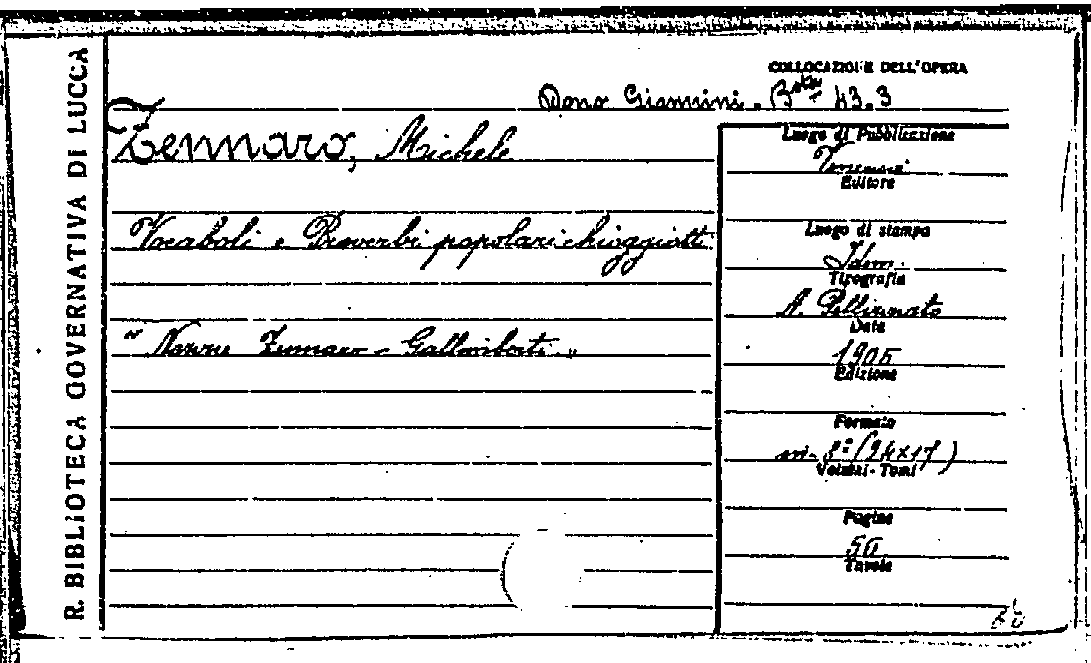 R. BIBLIOTECA GOVERNATIVA DI LUCCA
COLLOCAZIONE DELL'OPERA
Dono Giannini. Bsta 43.3
Zennaro, Michele
Vocaboli e Proverbi popolari chioggiotti
" Nozze Zennaro - Gallimberti "
Luogo di Pubblicazione
Editore
Luogo di stampa
Idem.
Tipografia
A. Pellizzato
Data
1905
Edizione
Formato
in- 8º (24x17)
Volumi - Tomi
Pagine
Tavole